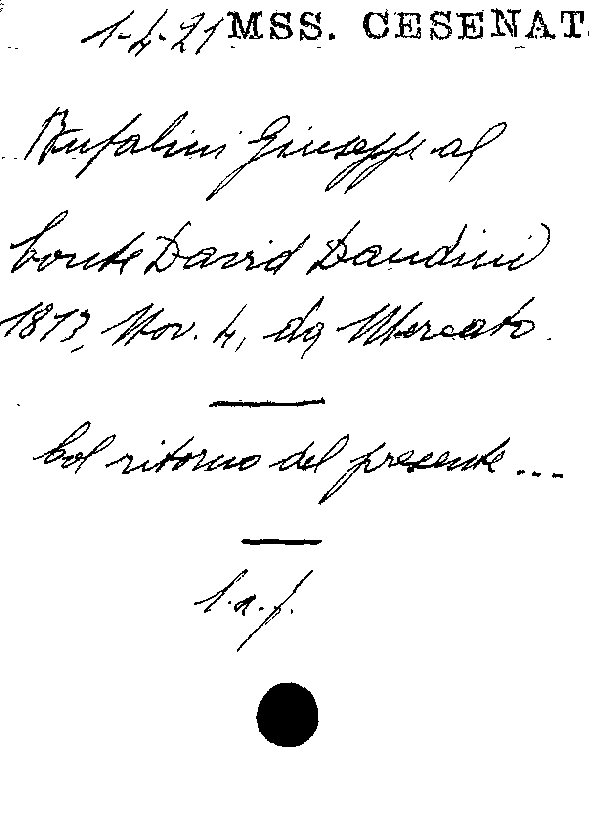 1-4-21 MSS. CESENAT.
Bufalini Giuseppe al
Conte David Dandini
1813, Nov. 4, da Mercato.
Col ritorno del presente...
l.a.f.